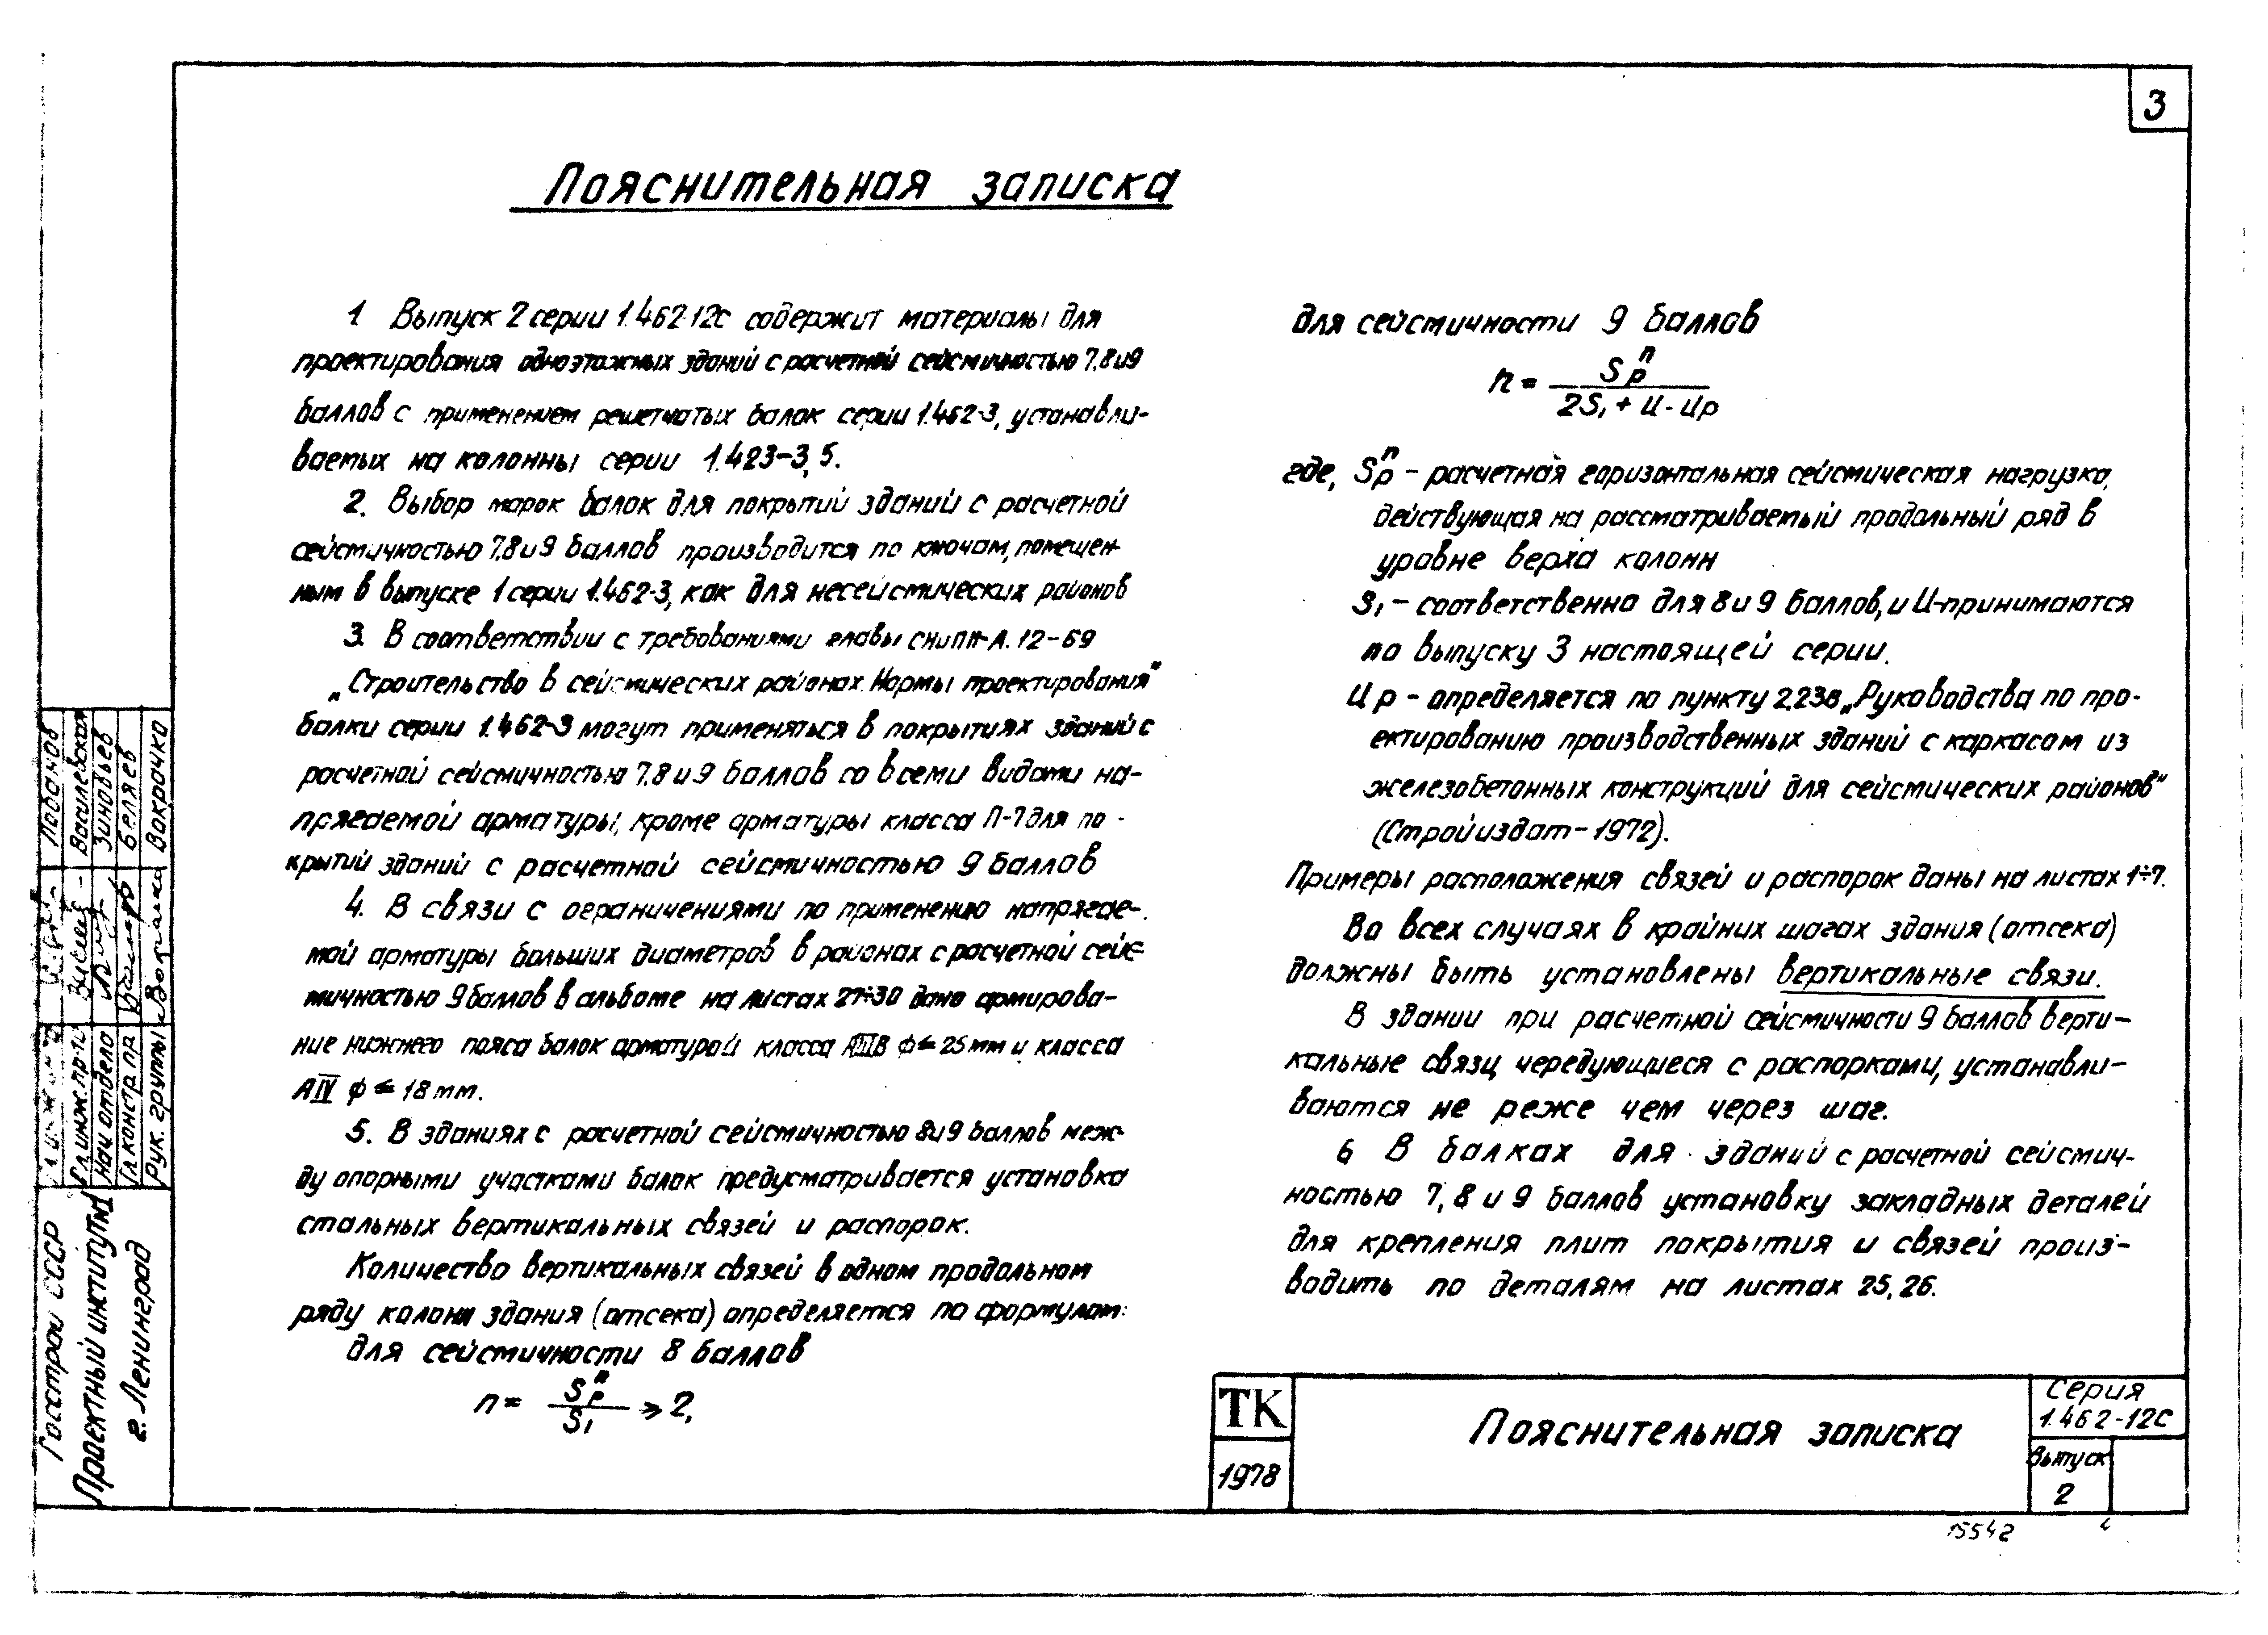 3
Пояснительная записка
1. Выпуск 2 серии 1.462-12с содержит материалы для
проектирования одноэтажных зданий с расчетной сейсмичностью 7,8 и 9
баллов с применением решетчатых балок серии 1.462-3, устанавли-
ваемых на колонны серии 1.423-3,5.
2. Выбор марок балок для покрытий зданий с расчетной
сейсмичностью 7,8 и 9 баллов производится по ключам, помещен-
ным в выпуске 1 серии 1.462-3, как для несейсмических районов
3. В соответствии с требованиями главы СНиП II-А.12-69
„Строительство в сейсмических районах. Нормы проектирования"
балки серии 1.462-3 могут применяться в покрытиях зданий с
расчетной сейсмичностью 7,8 и 9 баллов со всеми видами на-
прягаемой арматуры, кроме арматуры класса П-7 для по-
крытий зданий с расчетной сейсмичностью 9 баллов
4. В связи с ограничениями по применению напрягае-
мой арматуры больших диаметров в районах с расчетной сейс-
мичностью 9 баллов в альбоме на листах 27÷30 дано армирова-
ние нижнего пояса балок арматурой класса АIIIВ ф ≤ 25 мм и класса
АIV ф ≤ 18 мм.
5. В зданиях с расчетной сейсмичностью 8 и 9 баллов меж-
ду опорными участками балок предусматривается установка
стальных вертикальных связей и распорок.
Количество вертикальных связей в одном продольном
ряду колонн здания (отсека) определяется по формулам:
для сейсмичности 8 баллов
n = Sрⁿ / S₁ ⩾ 2,
для сейсмичности 9 баллов
n = Sрⁿ / 2S₁ + И - Ир
где, Sрⁿ - расчетная горизонтальная сейсмическая нагрузка,
действующая на рассматриваемый продольный ряд в
уровне верха колонн
S₁ - соответственно для 8 и 9 баллов, и И - принимаются
по выпуску 3 настоящей серии.
Ир - определяется по пункту 2.23в „Руководства по про-
ектированию производственных зданий с каркасом из
железобетонных конструкций для сейсмических районов"
(Стройиздат-1972).
Примеры расположения связей и распорок даны на листах 1÷7.
Во всех случаях в крайних шагах здания (отсека)
должны быть установлены вертикальные связи.
В здании при расчетной сейсмичности 9 баллов верти-
кальные связи, чередующиеся с распорками, устанавли-
ваются не реже чем через шаг.
6 В балках для зданий с расчетной сейсмич-
ностью 7, 8 и 9 баллов установку закладных деталей
для крепления плит покрытия и связей произ-
водить по деталям на листах 25, 26.
Лобанов
Василевская
Зиновьев
Беляев
Вакрачко
Гл.инж.пр-та
Нач отдела
Гл.констр.пр
Рук. группы
Госстрой СССР
Проектный институт №1
г. Ленинград
ТК
1978
Пояснительная записка
Серия
1.462-12С
Выпуск
2
15542
4